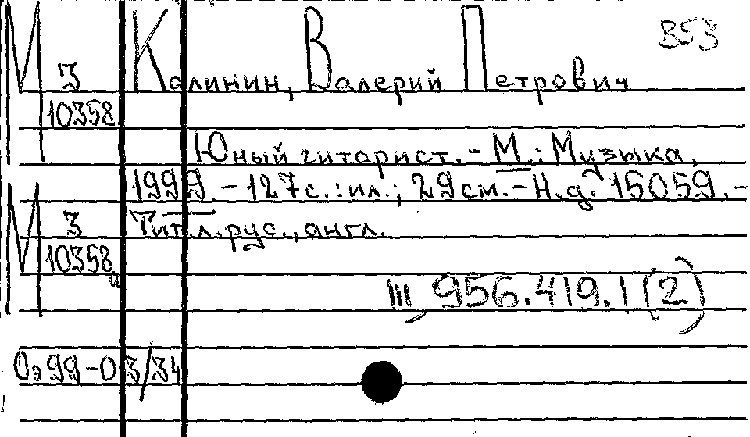 353
М 3 Калинин, Валерий Петрович
10358
Юный гитарист. - М.: Музыка,
1999. - 127с.: ил.; 29см. - Н.д. 15059. -
М 3 Тит.л. рус., англ.
10358а
III, 956.419.1 (2)
99-0 3/34